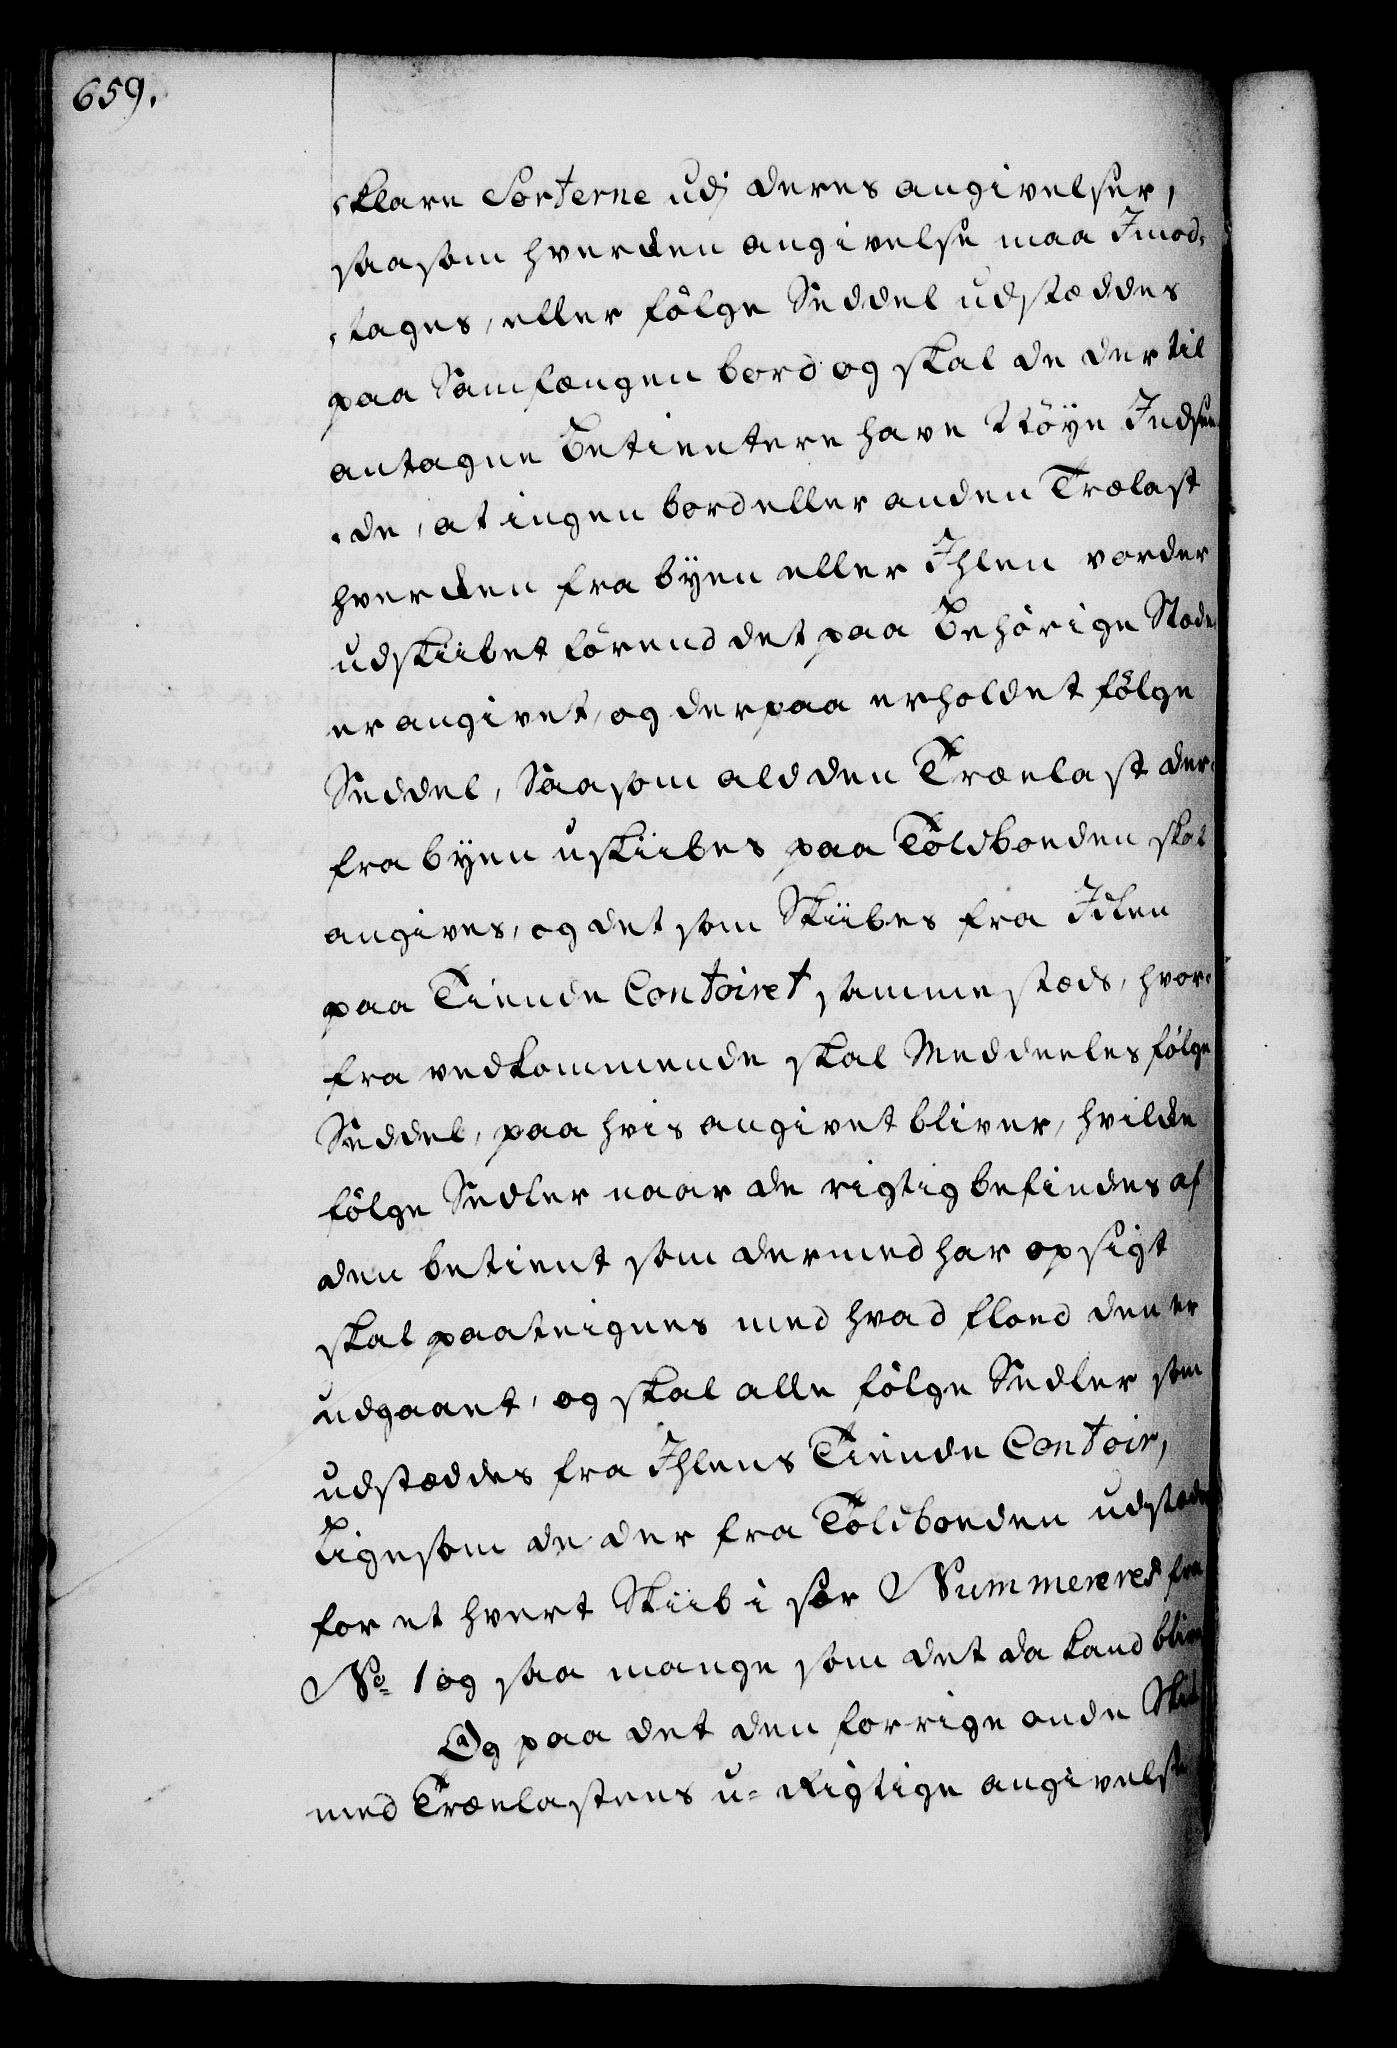 659.
klare Sorterne udj deres angivelser,
saasom hverken angivelse maa Jmod-
tages, eller fölge Seddel udstæddes
paa Samfængen bord og skal de der til
antagne Betientere have Nöye Indseen-
de, at ingen bord eller anden Trælast
hverken fra byen eller Ihlen vorder
udskiibet förend det paa Behörige Stæde
er angivet, og derpaa erholdet fölge
Seddel, Saasom ald den Trælast der
fra byen uskiibes paa Toldboeden skal
angives, og det som Skiibes fra Jhlen
paa Tiende Contoiret sammestæds, hvor-
fra vedkommende skal Meddeeles fölge
Seddel, paa hvis angivet bliver, hvilke
fölge Sedler naar de rigtig befindes af
den betient som dermed har opsigt
skal paateignes med hvad floed den er
udgaaet, og skal alle fölge Sedler som
udstæddes fra Ihlens Tiende Contoir,
Ligesom de der fra Toldboeden udstædes
for et hvert Skiib i sær Nummereres fra
No 1 og saa mange som det da kand blive
Og paa det den forrige onde Skik
med Trælastens u-Rigtige angivelse